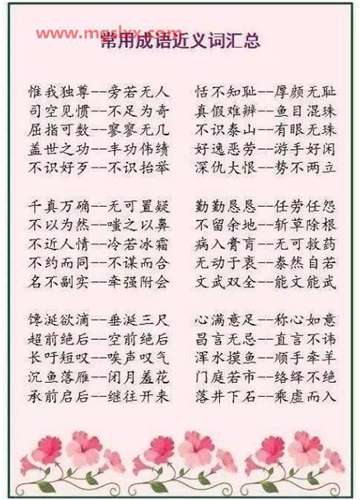 www.mgshrx.com
常用成语近义词汇总
惟我独尊--旁若无人 恬不知耻--厚颜无耻
司空见惯--不足为奇 真假难辨--鱼目混珠
屈指可数--寥寥无几 不识泰山--有眼无珠
盖世之功--丰功伟绩 好逸恶劳--游手好闲
不识好歹--不识抬举 深仇大恨--势不两立
千真万确--无可置疑 勤勤恳恳--任劳任怨
不以为然--嗤之以鼻 不留余地--斩草除根
不近人情--冷若冰霜 病入膏肓--无可救药
不约而同--不谋而合 无动于衷--泰然自若
名不副实--牵强附会 文武双全--能文能武
馋涎欲滴--垂涎三尺 心满意足--称心如意
超前绝后--空前绝后 昌言无忌--直言不讳
长吁短叹--唉声叹气 浑水摸鱼--顺手牵羊
沉鱼落雁--闭月羞花 门庭若市--络绎不绝
承前启后--继往开来 落井下石--乘虚而入